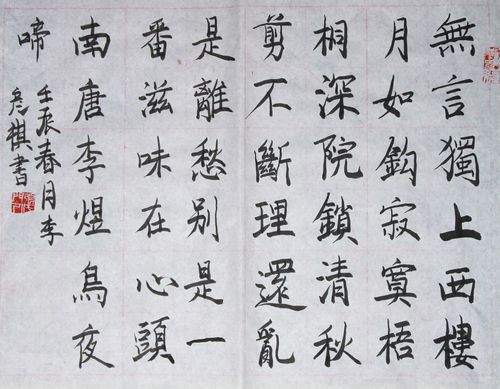 無言獨上西樓
月如鈎寂寞梧
桐深院鎖清秋
剪不斷理還亂
是離愁别是一
番滋味在心頭
南唐李煜烏夜
啼
壬辰春月李
書